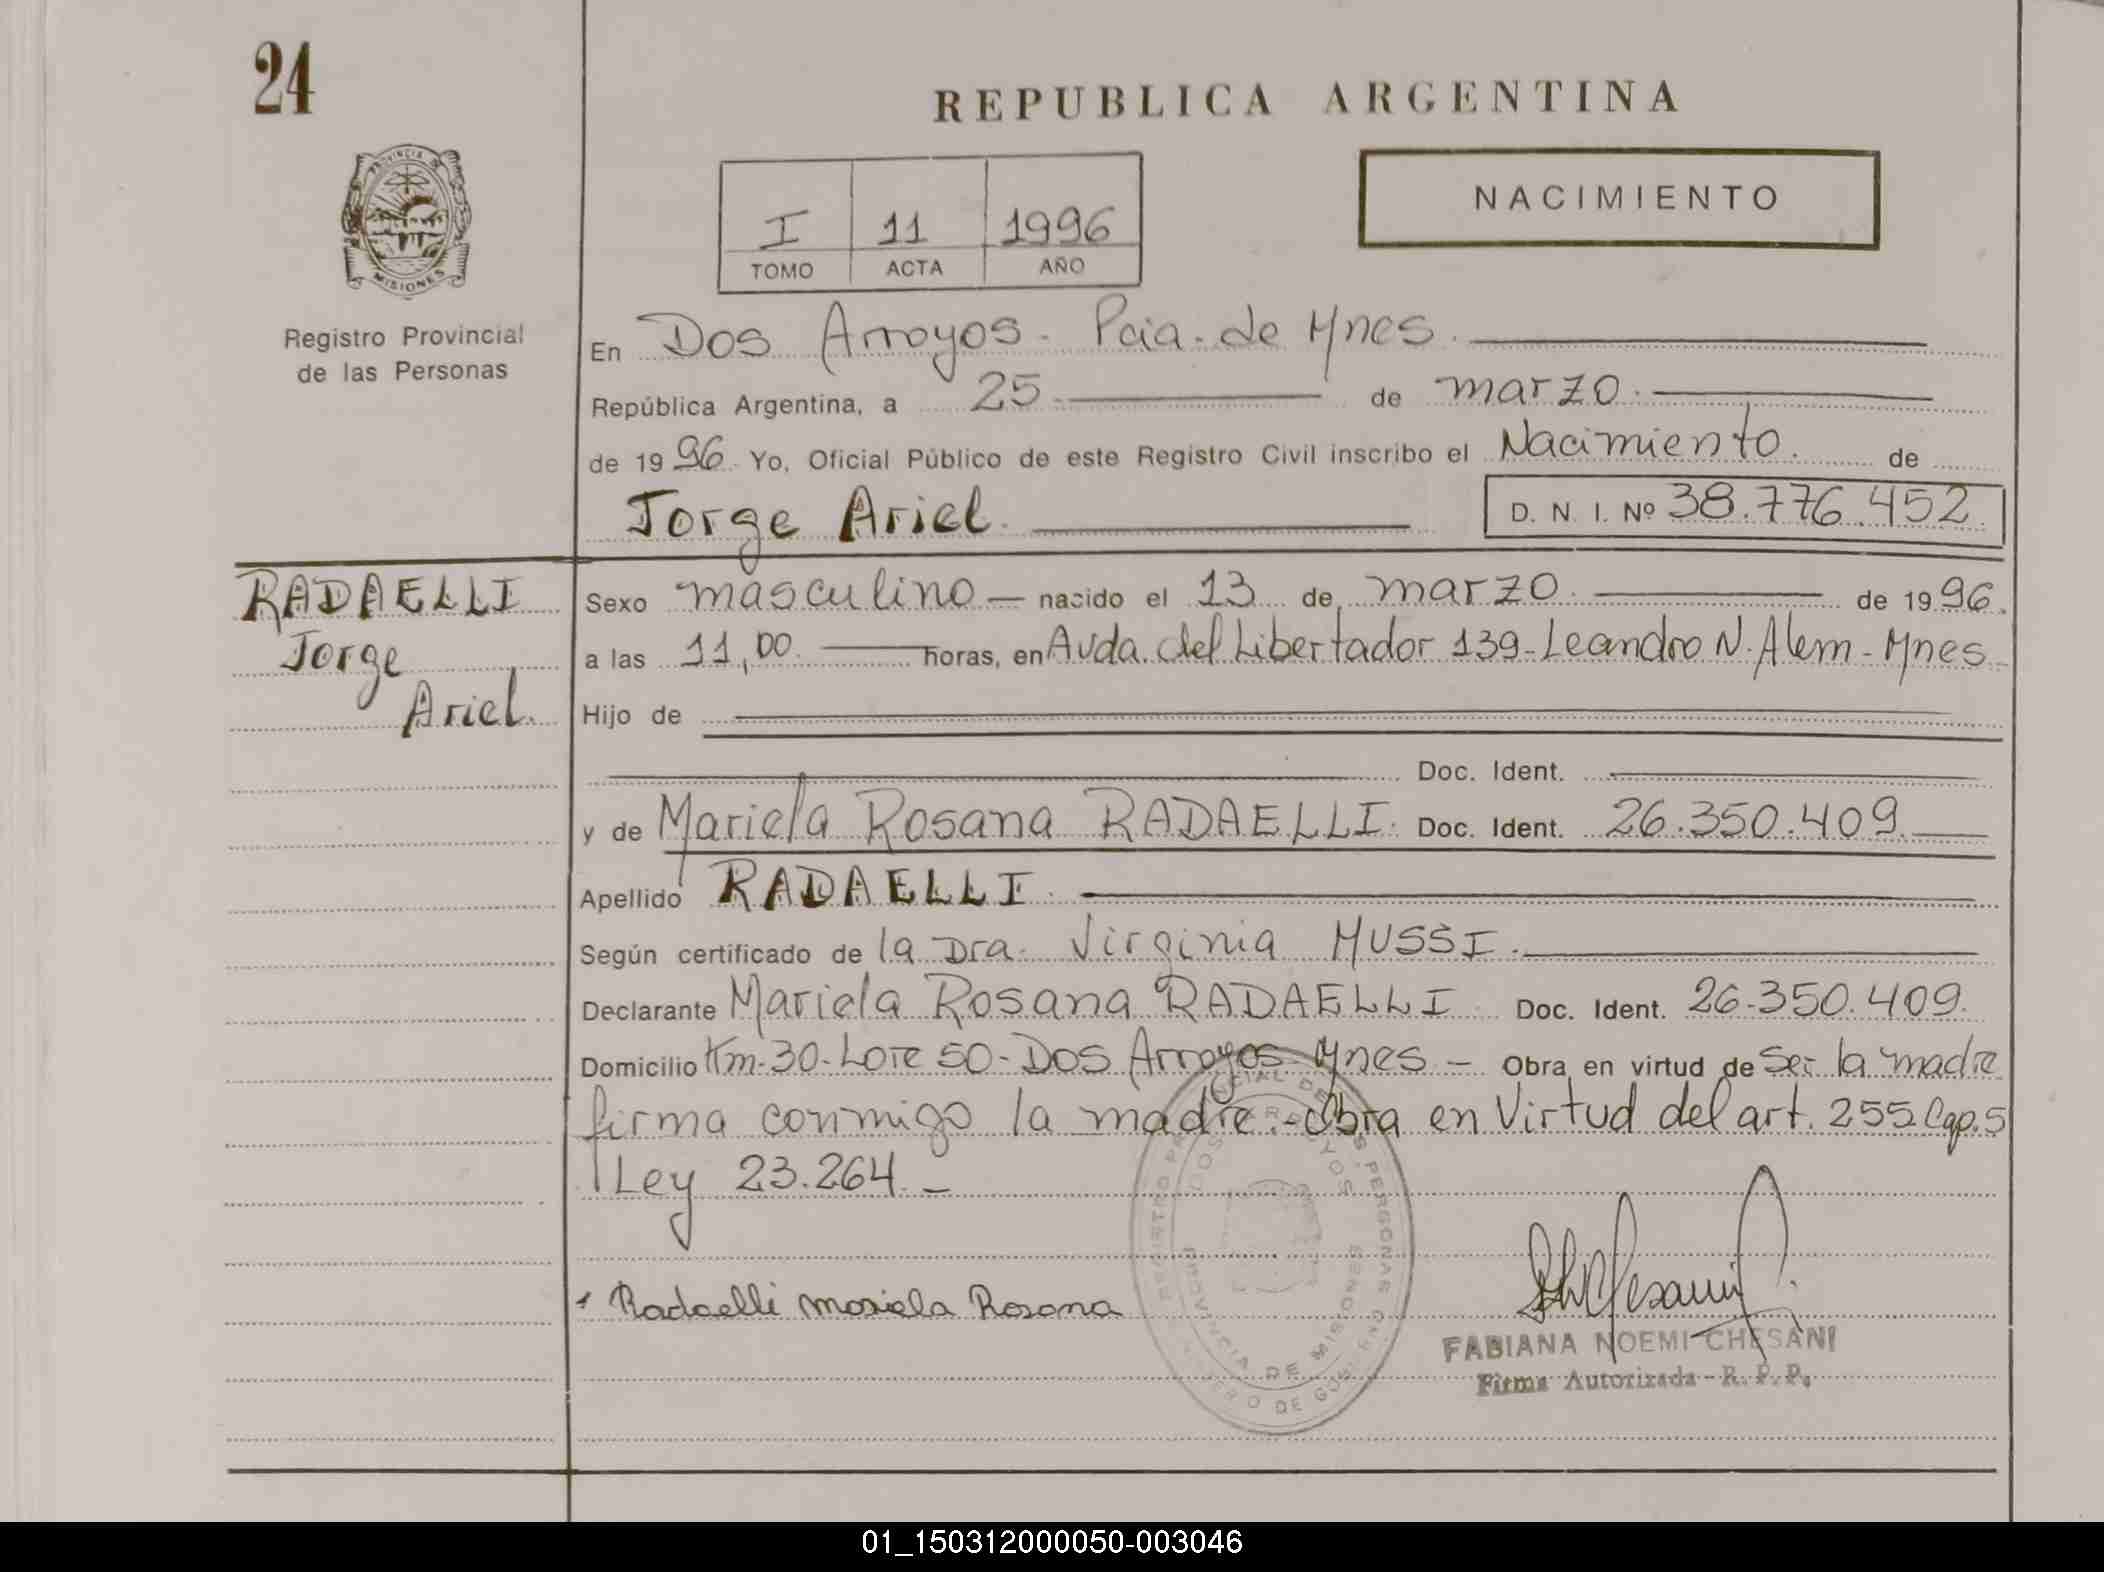 24
REPUBLICA ARGENTINA
NACIMIENTO
I 11 1996
TOMO ACTA AÑO
PROVINCIA
MISIONES
Registro Provincial
de las Personas
En Dos Arroyos. Pcia. de Mnes.
República Argentina, a 25 de marzo.
de 1996. Yo, Oficial Público de este Registro Civil inscribo el Nacimiento. de
Jorge Ariel. D. N. I. Nº 38.776.452.
RADAELLI
Jorge
Ariel.
Sexo masculino — nacido el 13 de marzo. de 1996.
a las 11,00. horas, en Avda. del Libertador 139-Leandro N. Alem - Mnes
Hijo de
Doc. Ident.
y de Mariela Rosana RADAELLI. Doc. Ident. 26.350.409.
Apellido RADAELLI.
Según certificado de la Dra. Virginia MUSSI.
Declarante Mariela Rosana RADAELLI. Doc. Ident. 26.350.409.
Domicilio Km-30-Lote 50-Dos Arroyos-Mnes - Obra en virtud de Ser la madre
firma conmigo la madre.-Obra en Virtud del art. 255 Cap. 5
Ley 23.264. -
Radaelli Mariela Rosana
DOS ARROYOS
PROVINCIA DE MISIONES
FABIANA NOEMI CHESANI
Firma Autorizada - R. P. P.
01_150312000050-003046